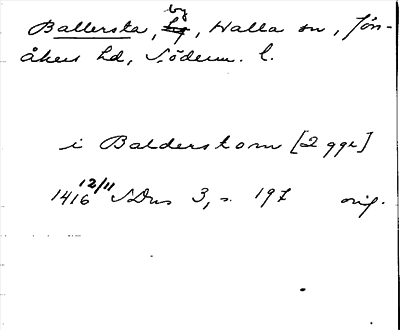 Ballersta, by, Halla sn, Jön-
åkers hd, Söderm. l.
i Balderstom [2 ggr]
1416 12/11 SDns 3, s. 197 orig.